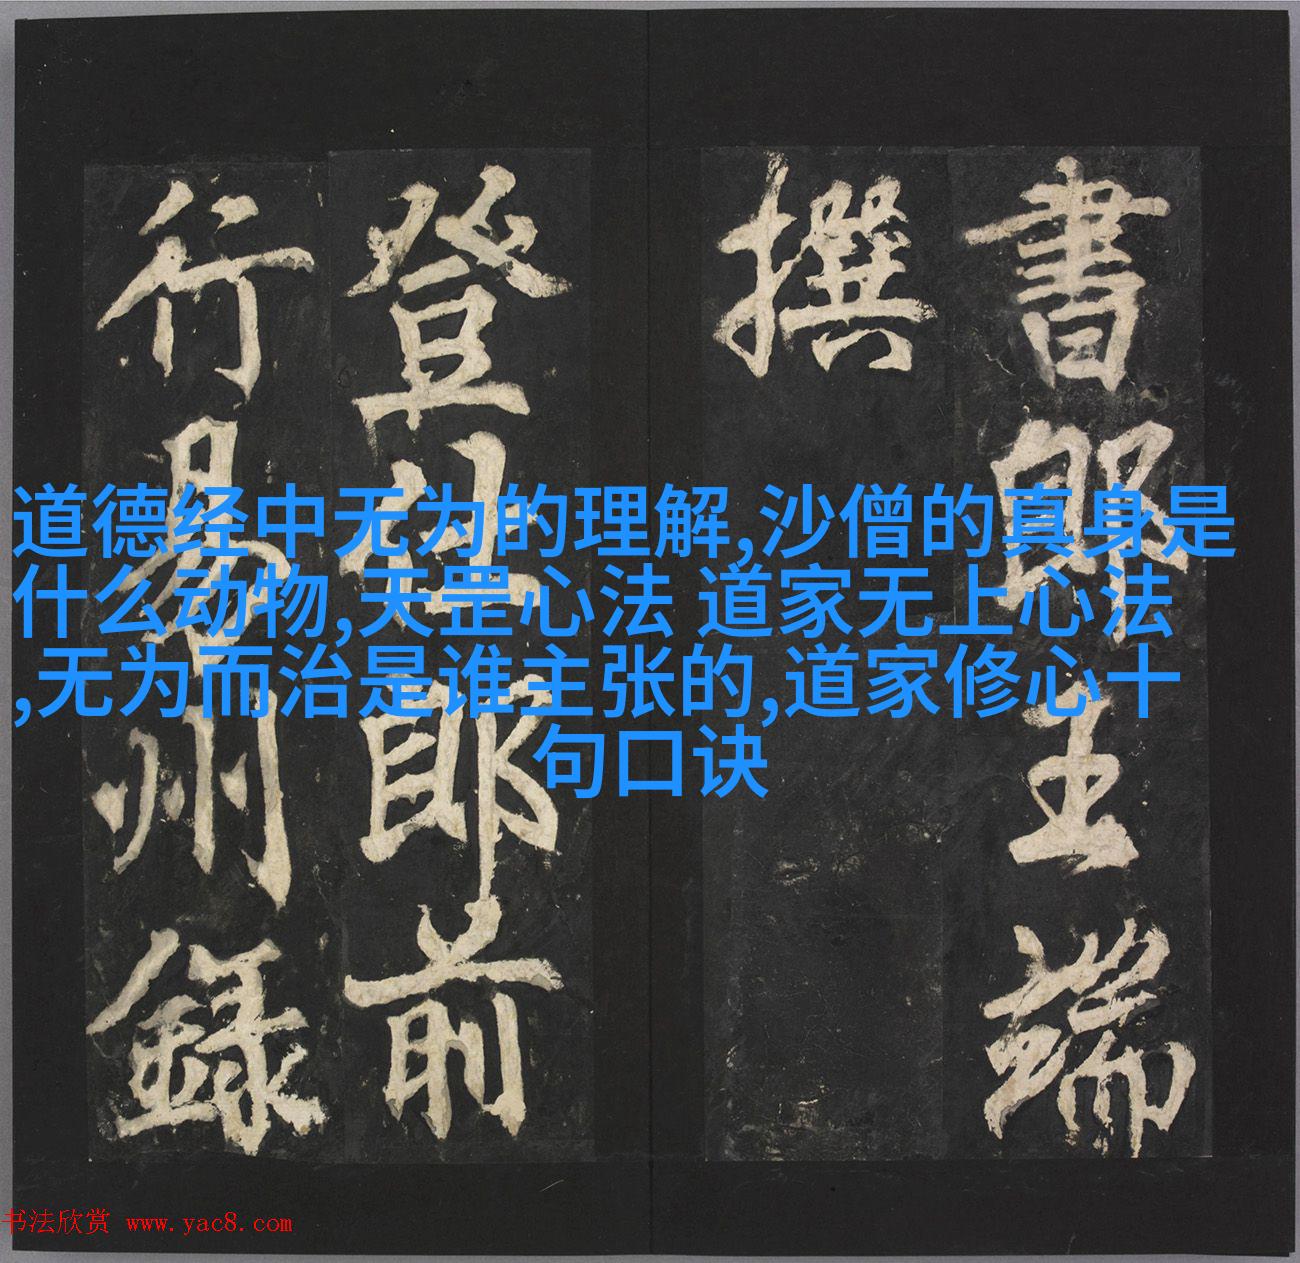 書郎王端
撰
登仕郎前
行易州錄
道德经中无为的理解,沙僧的真身是
什么动物,天罡心法 道家无上心法
,无为而治是谁主张的,道家修心十
句口诀
书法欣赏 www.yac8.com